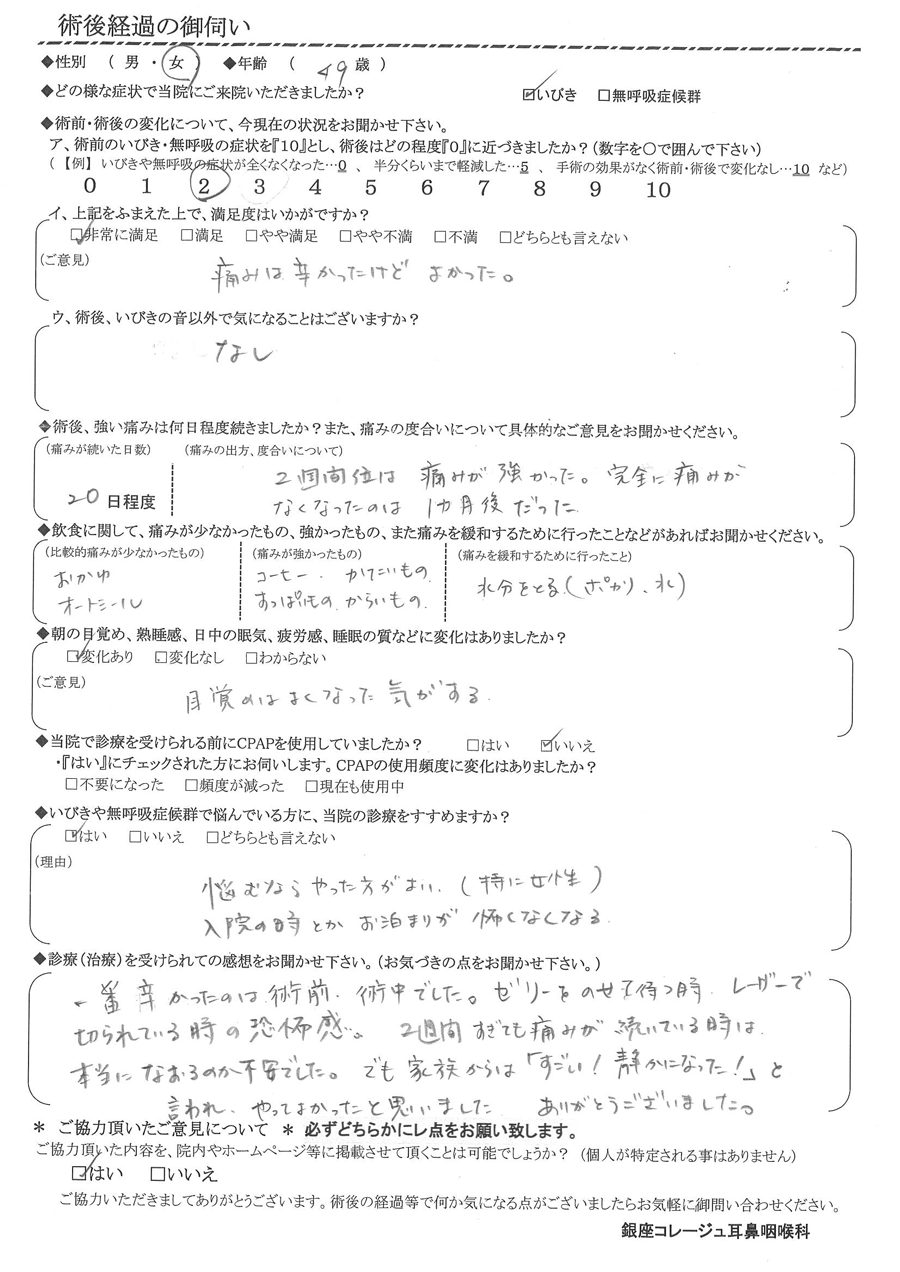 術後経過の御伺い
◆性別 （ 男 ・ 女 ） ◆年齢 （ 49 歳 ）
◆どの様な症状で当院にご来院いただきましたか？ ☑いびき □無呼吸症候群
◆術前・術後の変化について、今現在の状況をお聞かせ下さい。
ア、術前のいびき・無呼吸の症状を『10』とし、術後はどの程度『0』に近づきましたか？（数字を○で囲んで下さい）
（ 【例】 いびきや無呼吸の症状が全くなくなった…0 、 半分くらいまで軽減した…5 、 手術の効果がなく術前・術後で変化なし…10 など）
0 1 2 3 4 5 6 7 8 9 10
イ、上記をふまえた上で、満足度はいかがですか？
☑非常に満足 □満足 □やや満足 □やや不満 □不満 □どちらとも言えない
（ご意見）
痛みは辛かったけど よかった。
ウ、術後、いびきの音以外で気になることはございますか？
なし
◆術後、強い痛みは何日程度続きましたか？また、痛みの度合いについて具体的なご意見をお聞かせください。
（痛みが続いた日数） （痛みの出方、度合いについて）
2週間位は 痛みが強かった。完全に痛みが
20 日程度
なくなったのは 1カ月後だった
◆飲食に関して、痛みが少なかったもの、強かったもの、また痛みを緩和するために行ったことなどがあればお聞かせください。
（比較的痛みが少なかったもの） （痛みが強かったもの） （痛みを緩和するために行ったこと）
おかゆ コーヒー. かたいもの 水分をとる（ポカリ、水）
オートミール すっぱいもの からいもの
◆朝の目覚め、熟睡感、日中の眠気、疲労感、睡眠の質などに変化はありましたか？
☑変化あり □変化なし □わからない
（ご意見）
目覚めはよくなった気がする.
◆当院で診療を受けられる前にCPAPを使用していましたか？ □はい ☑いいえ
・『はい』にチェックされた方にお伺いします。CPAPの使用頻度に変化はありましたか？
□不要になった □頻度が減った □現在も使用中
◆いびきや無呼吸症候群で悩んでいる方に、当院の診療をすすめますか？
☑はい □いいえ □どちらとも言えない
（理由）
悩むなら やった方がよい.（特に女性）
入院の時とか お泊まりが 怖くなくなる.
◆診療（治療）を受けられての感想をお聞かせ下さい。（お気づきの点をお聞かせ下さい。）
一番 辛かったのは 術前. 術中でした。ゼリーをのせて待つ時. レーザーで
切られている時の恐怖感。 2週間すぎても痛みが 続いている時は
本当に なおるのか不安でした。でも 家族からは「すごい！静かになった！」と
言われ. やってよかったと思いました ありがとうございました。
＊ ご協力頂いたご意見について ＊ 必ずどちらかにレ点をお願い致します。
ご協力頂いた内容を、院内やホームページ等に掲載させて頂くことは可能でしょうか？ （個人が特定される事はありません）
☑はい □いいえ
ご協力いただきましてありがとうございます。術後の経過等で何か気になる点がございましたらお気軽に御問い合わせください。
銀座コレージュ耳鼻咽喉科